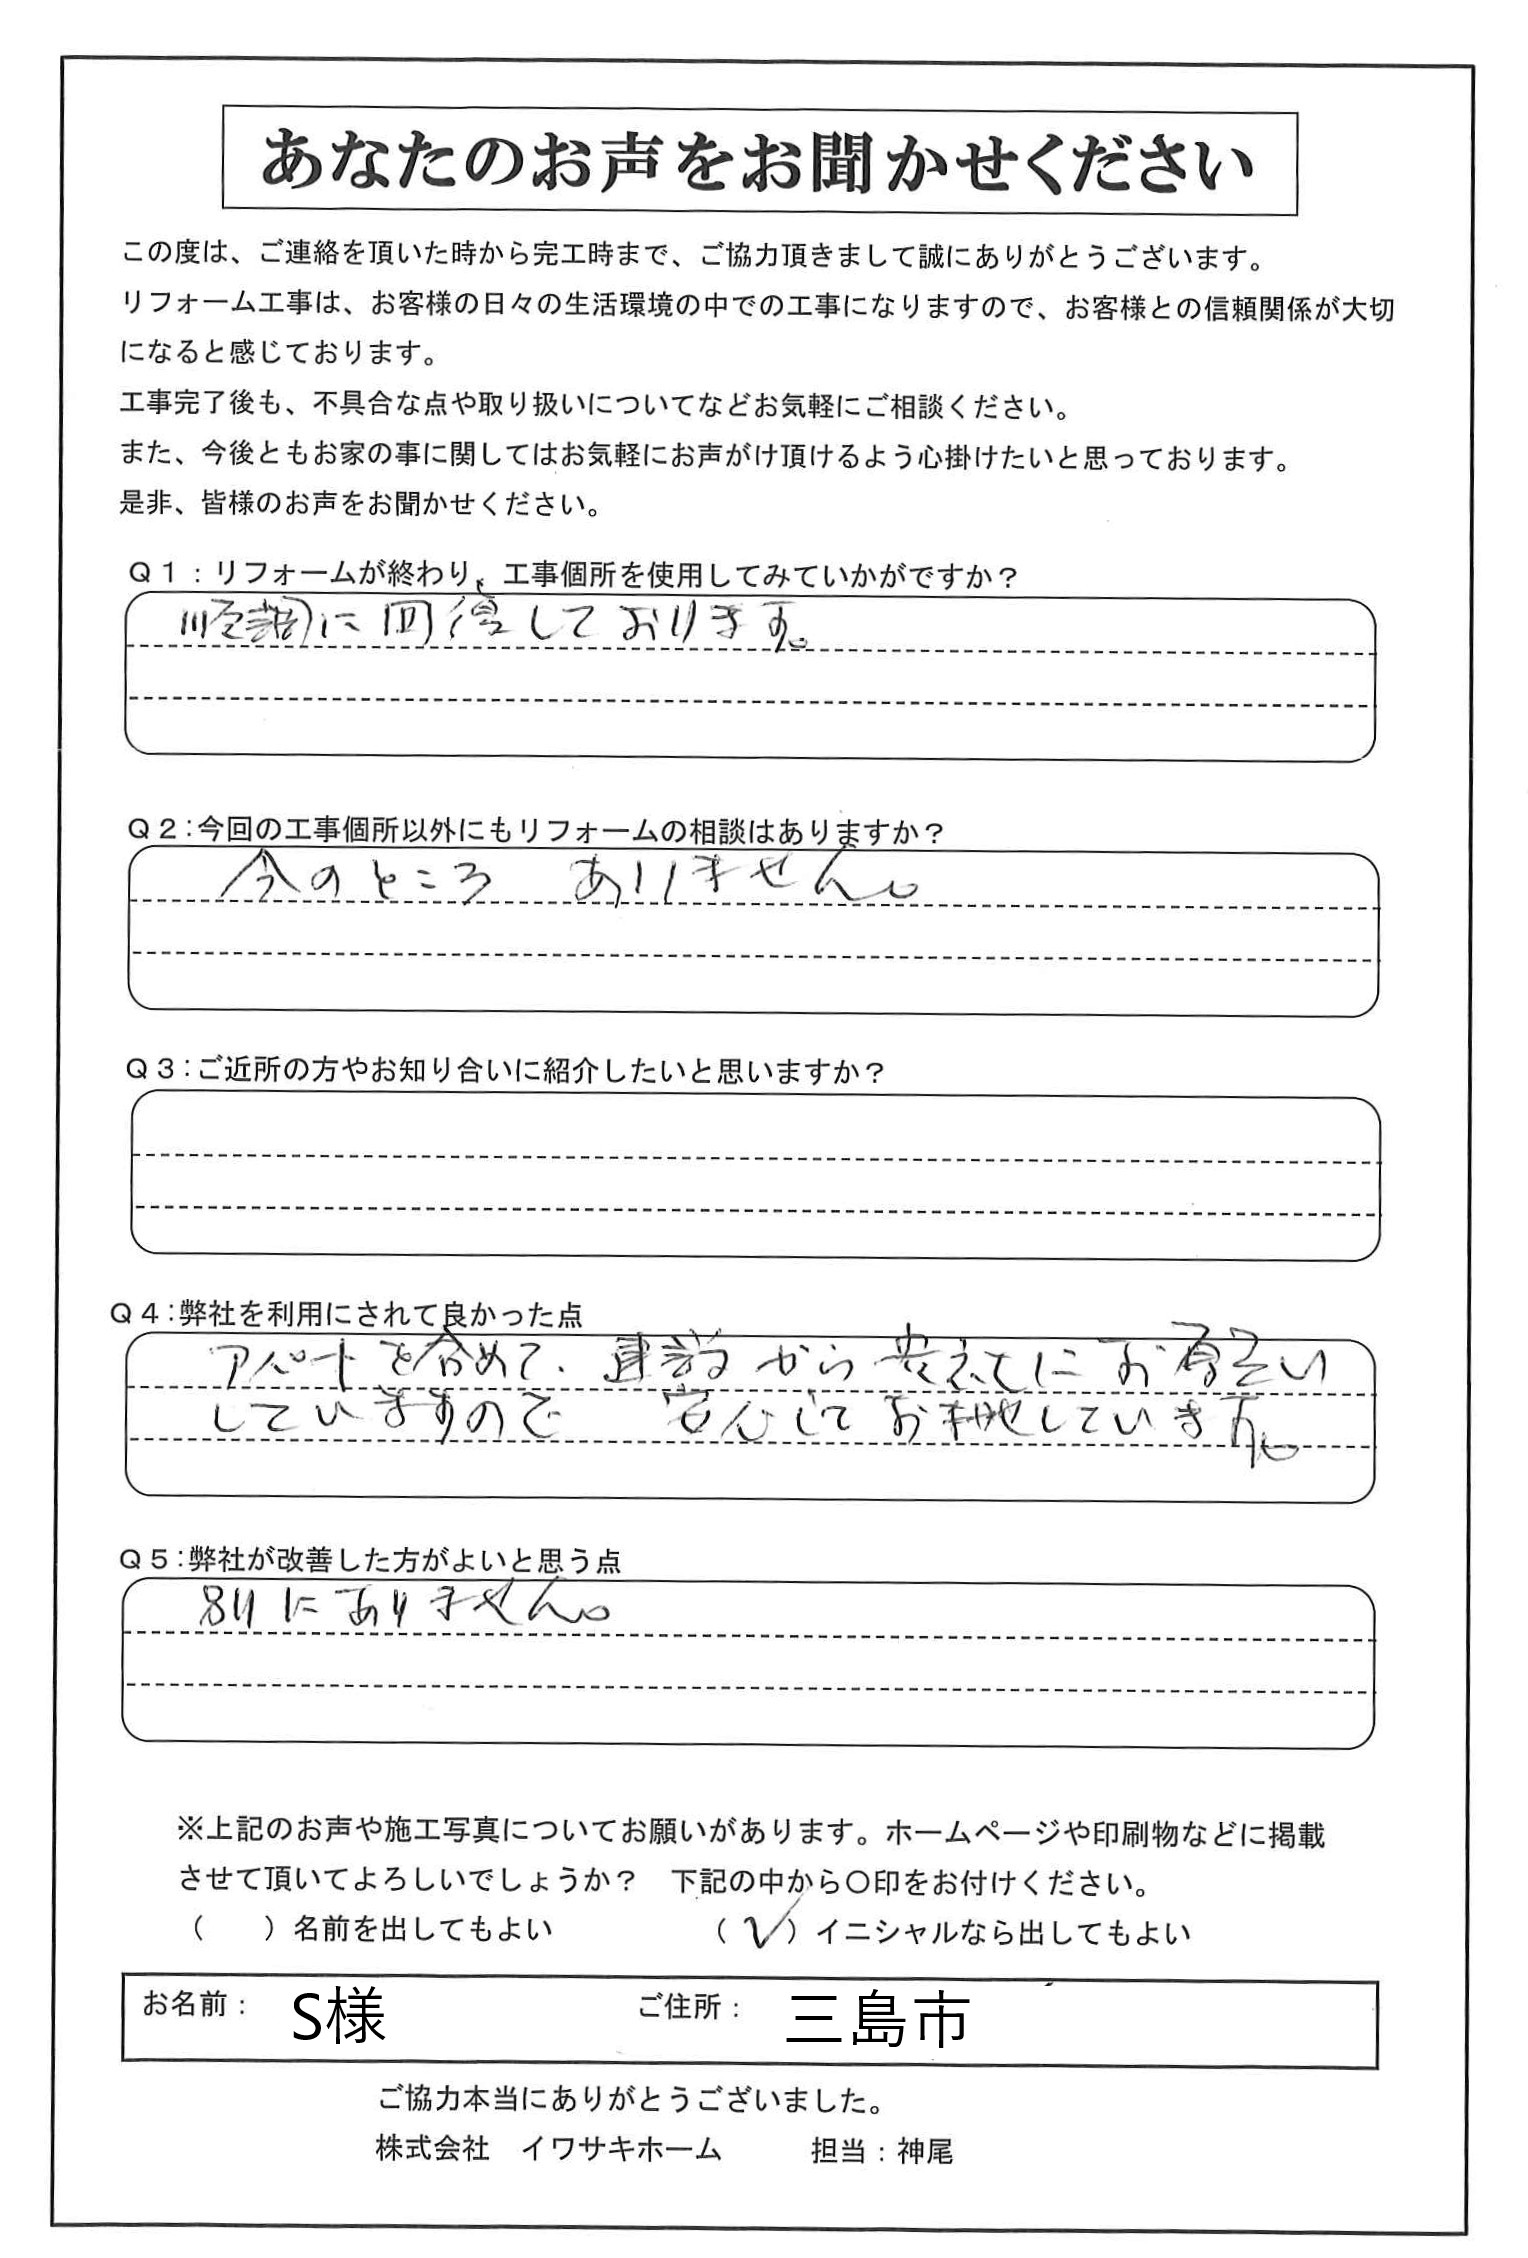 あなたのお声をお聞かせください
この度は、ご連絡を頂いた時から完工時まで、ご協力頂きまして誠にありがとうございます。
リフォーム工事は、お客様の日々の生活環境の中での工事になりますので、お客様との信頼関係が大切
になると感じております。
工事完了後も、不具合な点や取り扱いについてなどお気軽にご相談ください。
また、今後ともお家の事に関してはお気軽にお声がけ頂けるよう心掛けたいと思っております。
是非、皆様のお声をお聞かせください。
Q1:リフォームが終わり、工事個所を使用してみていかがですか?
順調に回復しております。
Q2:今回の工事個所以外にもリフォームの相談はありますか?
今のところ ありません。
Q3:ご近所の方やお知り合いに紹介したいと思いますか?
Q4:弊社を利用にされて良かった点
アパートを含めて、建設から にお願い
していますので 安心して しています。
Q5:弊社が改善した方がよいと思う点
別にありません。
※上記のお声や施工写真についてお願いがあります。ホームページや印刷物などに掲載
させて頂いてよろしいでしょうか? 下記の中から○印をお付けください。
( )名前を出してもよい (✓)イニシャルなら出してもよい
お名前: S様 ご住所: 三島市
ご協力本当にありがとうございました。
株式会社 イワサキホーム 担当:神尾